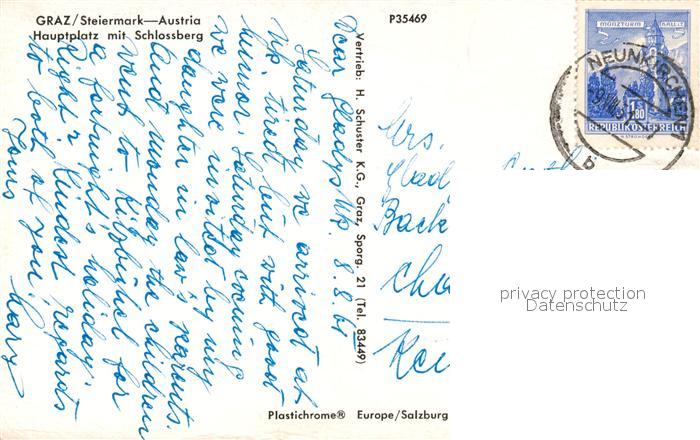 GRAZ/Steiermark—Austria
Hauptplatz mit Schlossberg
P35469
MÜNZTURM HALL i.T.
1.80
REPUBLIK ÖSTERREICH
NEUNKIRCHEN
b
Vertrieb: H. Schuster K.G., Graz, Sporg. 21 (Tel. 83449)
Nk. 8.8.61
Dear Gladys
Saturday we arrived at
Nk. tired but with good
humor. Saturday evening
we were invited by my
daughter in law's parents.
And monday the children
went to Kitzbühel for
a fortnight's holiday.
Right? Kindest regards
to both of you
Yours
Mary
Mrs.
Glad
Back
Cha
Ken
privacy protection
Datenschutz
Plastichrome® Europe/Salzburg